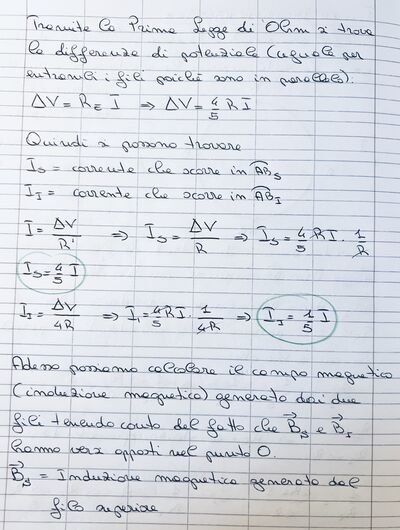 Tramite la Prima Legge di Ohm si trova
la differenza di potenziale (uguale per
entrambi i fili poiché sono in parallelo):
ΔV = R_E I ⇒ ΔV = 4/5 R I
Quindi si possono trovare
I_S = corrente che scorre in AB_S
I_I = corrente che scorre in AB_I
I = ΔV/R' ⇒ I_S = ΔV/R ⇒ I_S = 4/5 R I · 1/R
I_S = 4/5 I
I_I = ΔV/4R ⇒ I_I = 4/5 R I · 1/4R ⇒ I_I = 1/5 I
Adesso possiamo calcolare il campo magnetico
(induzione magnetica) generato dai due
fili tenendo conto del fatto che B_S e B_I
hanno versi opposti nel punto O.
B_S = Induzione magnetica generata dal
filo superiore